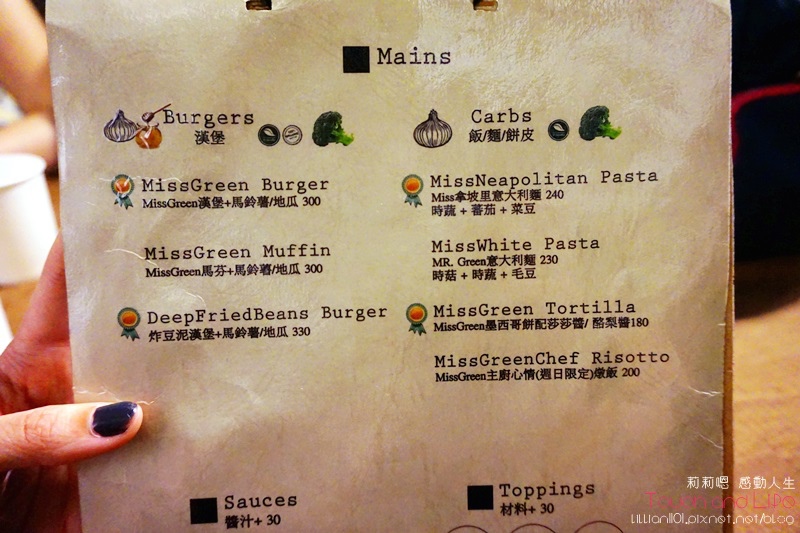 Mains
Burgers
漢堡
MissGreen Burger
MissGreen漢堡+馬鈴薯/地瓜 300
MissGreen Muffin
MissGreen馬芬+馬鈴薯/地瓜 300
DeepFriedBeans Burger
炸豆泥漢堡+馬鈴薯/地瓜 330
Carbs
飯/麵/餅皮
MissNeapolitan Pasta
Miss拿坡里意大利麵 240
時蔬 + 蕃茄 + 菜豆
MissWhite Pasta
MR. Green意大利麵 230
時菇 + 時蔬 + 毛豆
MissGreen Tortilla
MissGreen墨西哥餅配莎莎醬/ 酪梨醬180
MissGreenChef Risotto
MissGreen主廚心情(週日限定)燉飯 200
Sauces
醬汁+ 30
Toppings
材料+ 30
莉莉吧 感動人生
Touch and Life
LiLLian1101.pixnet.net/blog